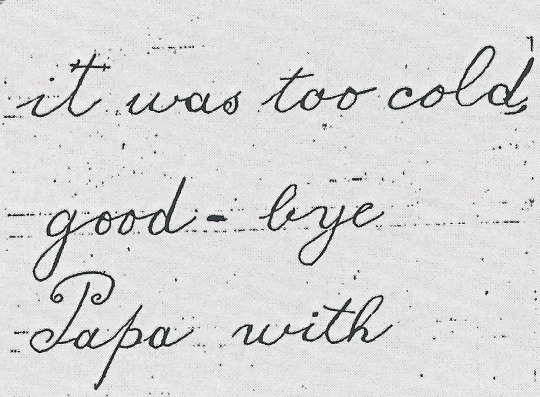 it was too cold,
good-bye
Papa with